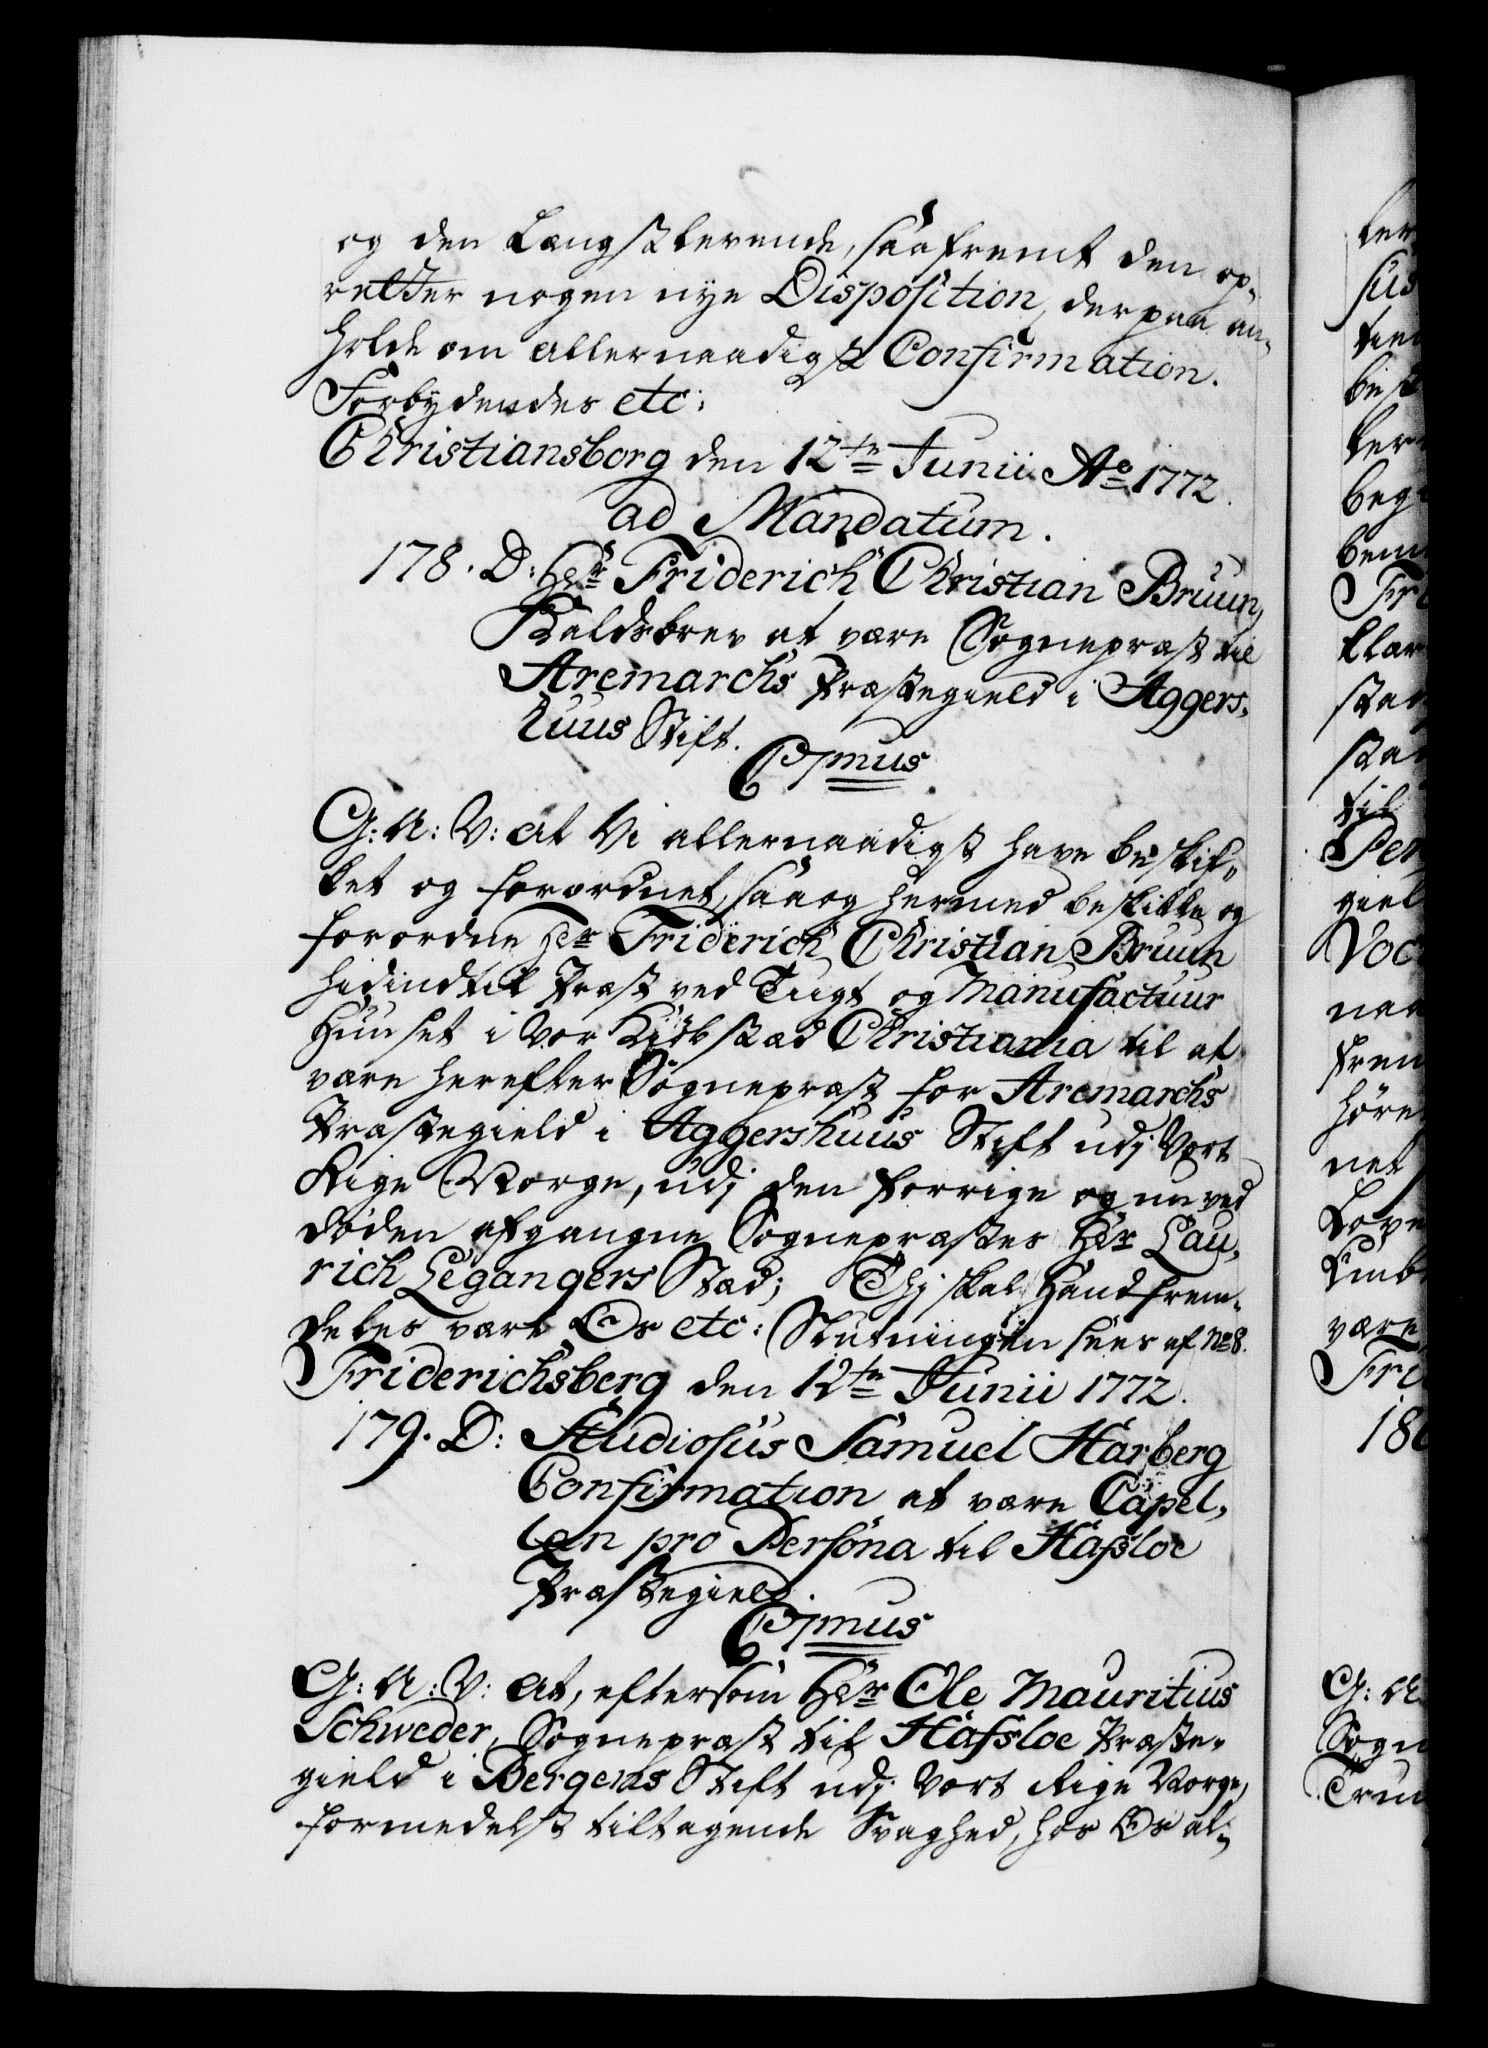 og den Længstlevende, saafremt den op-
retter nogen nye Disposition, derpaa an-
holde om allernaadigst Confirmation.
Forbydendes etc:
Christiansborg den 12te Junii Ao 1772.
ad Mandatum.
178. D: Hr Friderich Christian Bruun,
Kaldsbrev at være Sognepræst til
Aremarchs Præstegield i Aggers-
huus Stift.
Cpmus
G: A: V: at Vi allernaadigst have beskik-
ket og forordnet, saa og hermed beskikke og
forordne Hr Friderich Christian Bruun
hidindtil Præst ved Tugt og Manufactuur
Huuset i Vor Kiöbstæd Christiania til at
være herefter Sognepræst for Aremarchs
Præstegield i Aggershuus Stift udj Vort
Rige Norge, udj den forrige og nu ved
döden afgangne Sognepræstes Hr Lau-
rich Leganger's Stæd; Thj skal Hand frem-
deles være Os etc: Slutningen sees af No 8.
Friderichsberg den 12te Junii 1772.
179. D: Studiosus Samuel Harberg
Confirmation at være Capel-
lan pro Persona til Hafsloe
Præstegield.
Cpmus
G: A: V: at, eftersom Hr Ole Mauritius
Schweder, Sognepræst til Hafsloe Præste-
gield i Bergens Stift udj Vort Rige Norge,
formedelst tiltagende Svaghed, hos Os al-